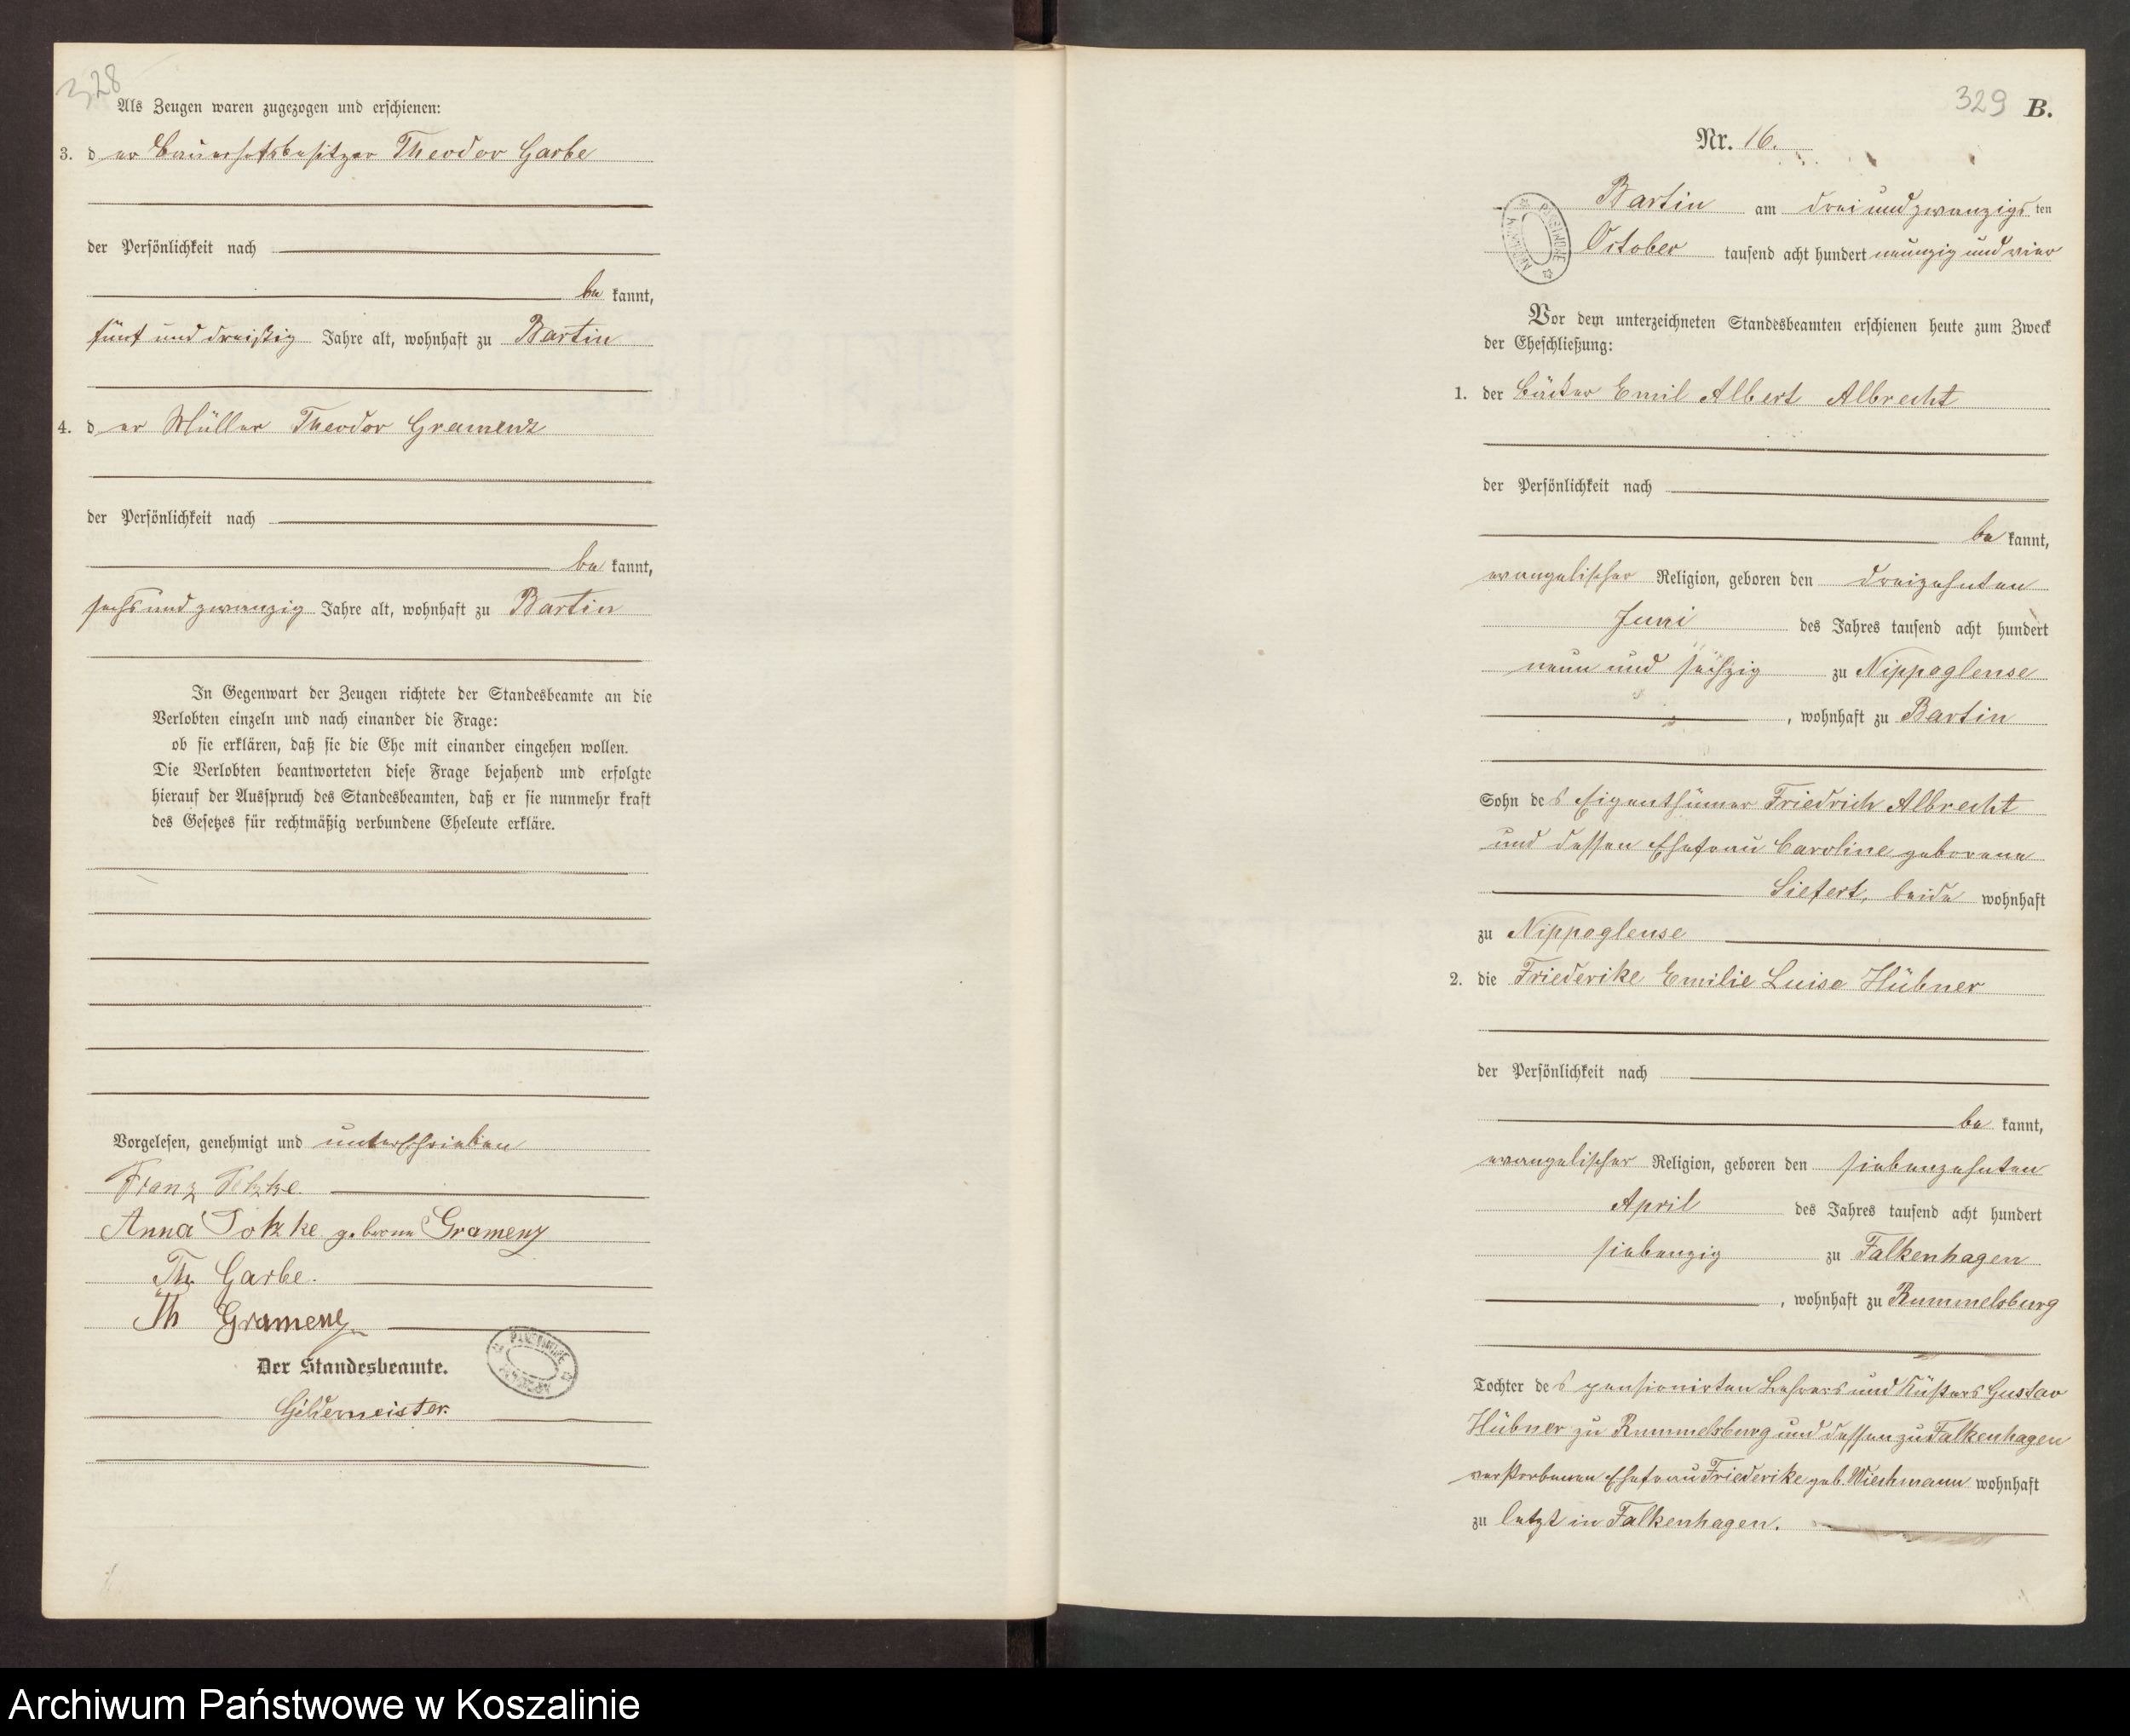 328
Als Zeugen waren zugezogen und erschienen:
3. der Bauerhofsbesitzer Theodor Garbe
der Persönlichkeit nach
be kannt,
fünf und dreißig Jahre alt, wohnhaft zu Bartin
4. der Müller Theodor Gramenz
der Persönlichkeit nach
be kannt,
sechs und zwanzig Jahre alt, wohnhaft zu Bartin
In Gegenwart der Zeugen richtete der Standesbeamte an die
Verlobten einzeln und nach einander die Frage:
ob sie erklären, daß sie die Ehe mit einander eingehen wollen.
Die Verlobten beantworteten diese Frage bejahend und erfolgte
hierauf der Ausspruch des Standesbeamten, daß er sie nunmehr kraft
des Gesetzes für rechtmäßig verbundene Eheleute erkläre.
Vorgelesen, genehmigt und unterschrieben
Franz
Anna geborne Gramenz
Th Garbe.
Th Gramenz
Der Standesbeamte.
Gildemeister.
329 B.
Nr. 16.
Bartin am drei und zwanzigsten
October tausend acht hundert neunzig und vier
Vor dem unterzeichneten Standesbeamten erschienen heute zum Zweck
der Eheschließung:
1. der Bäcker Emil Albert Albrecht
der Persönlichkeit nach
be kannt,
evangelischer Religion, geboren den dreizehnten
Juni des Jahres tausend acht hundert
neun und sechzig zu Nippoglense
, wohnhaft zu Bartin
Sohn des Eigenthümer Friedrich Albrecht
und dessen Ehefrau Caroline geborene
Siefert, beide wohnhaft
zu Nippoglense
2. die Friederike Emilie Luise Hübner
der Persönlichkeit nach
be kannt,
evangelischer Religion, geboren den siebenzehnten
April des Jahres tausend acht hundert
siebenzig zu Falkenhagen
, wohnhaft zu Rummelsburg
Tochter des pensionirten Lehrers und Küsters Gustav
Hübner zu Rummelsburg und dessen zu Falkenhagen
verstorbenen Ehefrau Friederike geb. Wiechmann wohnhaft
zu letzt in Falkenhagen.
Archiwum Państwowe w Koszalinie